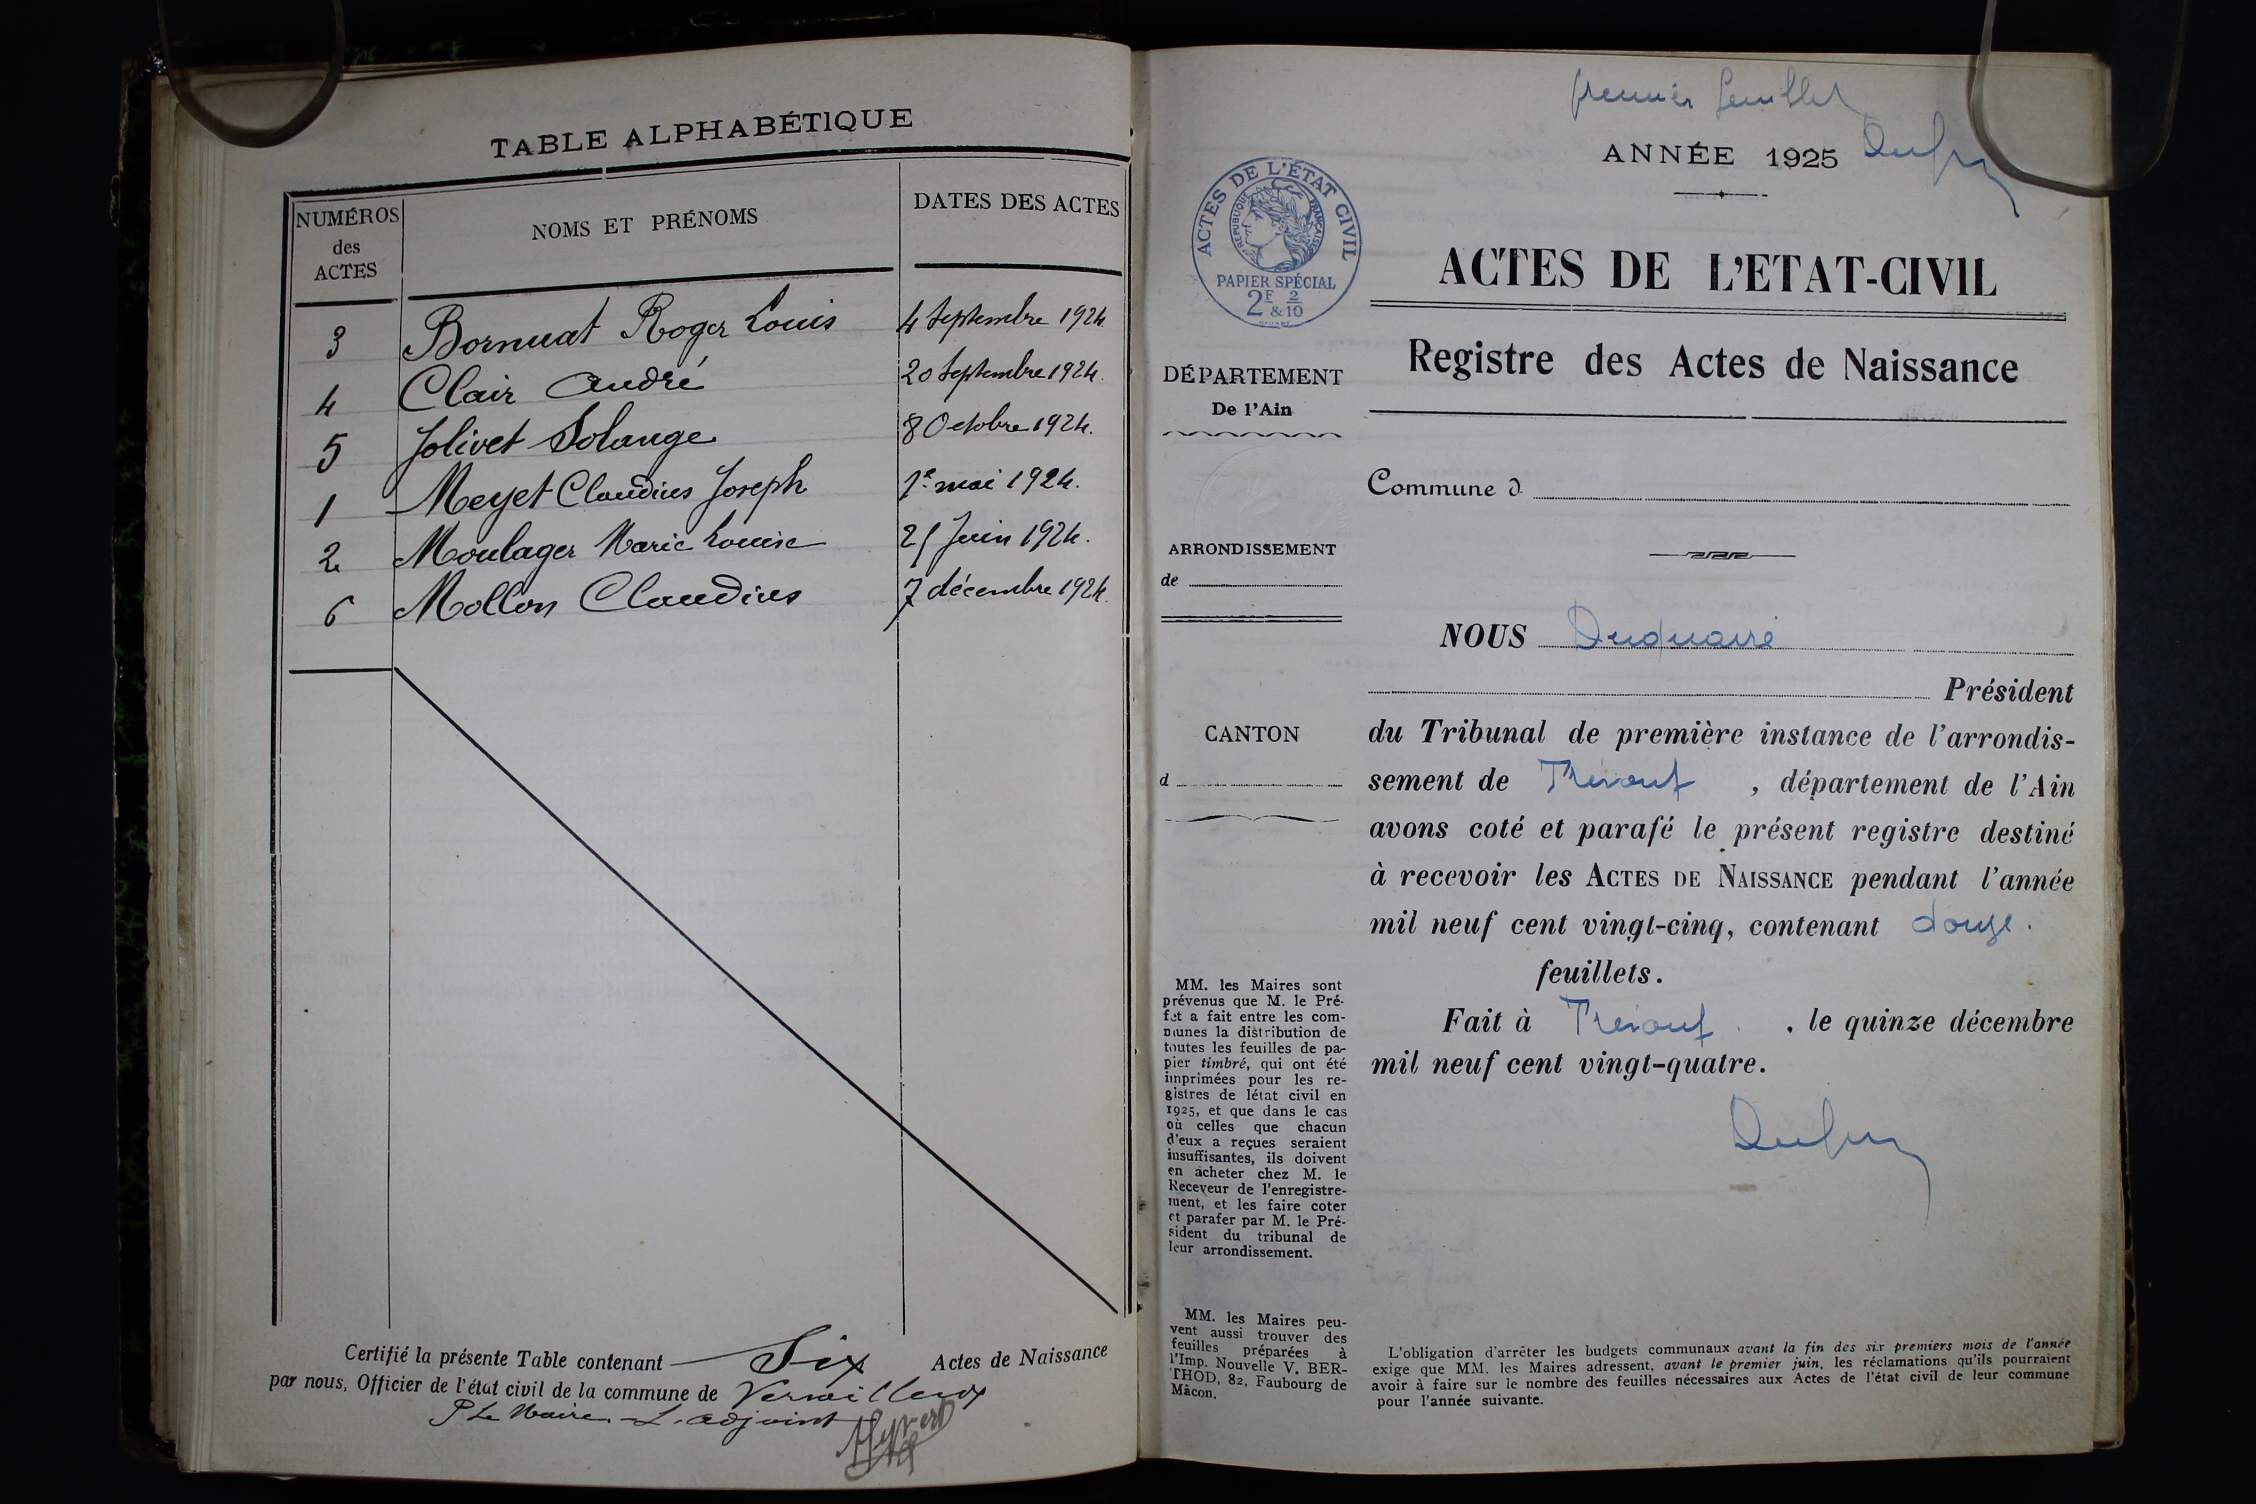 TABLE ALPHABÉTIQUE
NUMÉROS des ACTES
NOMS ET PRÉNOMS
DATES DES ACTES
3 Bornuat Roger Louis 4 Septembre 1924.
4 Clair André 20 Septembre 1924.
5 Jolivet Solange 8 Octobre 1924.
1 Meyet Claudius Joseph 1er mai 1924.
2 Moulager Marie Louise 25 Juin 1924.
6 Mollon Claudius 7 décembre 1924.
Certifié la présente Table contenant Six Actes de Naissance
par nous, Officier de l'état civil de la commune de Versailleux
P Le Maire. L. adjoint
premier feuillet
ANNÉE 1925
ACTES DE L'ÉTAT CIVIL
RÉPUBLIQUE FRANÇAISE
PAPIER SPÉCIAL
2F & 2/10
ACTES DE L'ETAT-CIVIL
Registre des Actes de Naissance
DÉPARTEMENT
De l'Ain
Commune d
ARRONDISSEMENT
de
CANTON
d
NOUS Duquaire
Président
du Tribunal de première instance de l'arrondis-
sement de Trévoux, département de l'Ain
avons coté et parafé le présent registre destiné
à recevoir les ACTES DE NAISSANCE pendant l'année
mil neuf cent vingt-cinq, contenant douze.
feuillets.
Fait à Trévoux, le quinze décembre
mil neuf cent vingt-quatre.
MM. les Maires sont
prévenus que M. le Pré-
fet a fait entre les com-
munes la distribution de
toutes les feuilles de pa-
pier timbré, qui ont été
imprimées pour les re-
gistres de létat civil en
1925, et que dans le cas
où celles que chacun
d'eux a reçues seraient
insuffisantes, ils doivent
en acheter chez M. le
Receveur de l'enregistre-
ment, et les faire coter
et parafer par M. le Pré-
sident du tribunal de
leur arrondissement.
MM. les Maires peu-
vent aussi trouver des
feuilles préparées à
l'Imp. Nouvelle V. BER-
THOD, 82, Faubourg de
Mâcon.
L'obligation d'arrêter les budgets communaux avant la fin des six premiers mois de l'année
exige que MM. les Maires adressent, avant le premier juin, les réclamations qu'ils pourraient
avoir à faire sur le nombre des feuilles nécessaires aux Actes de l'état civil de leur commune
pour l'année suivante.